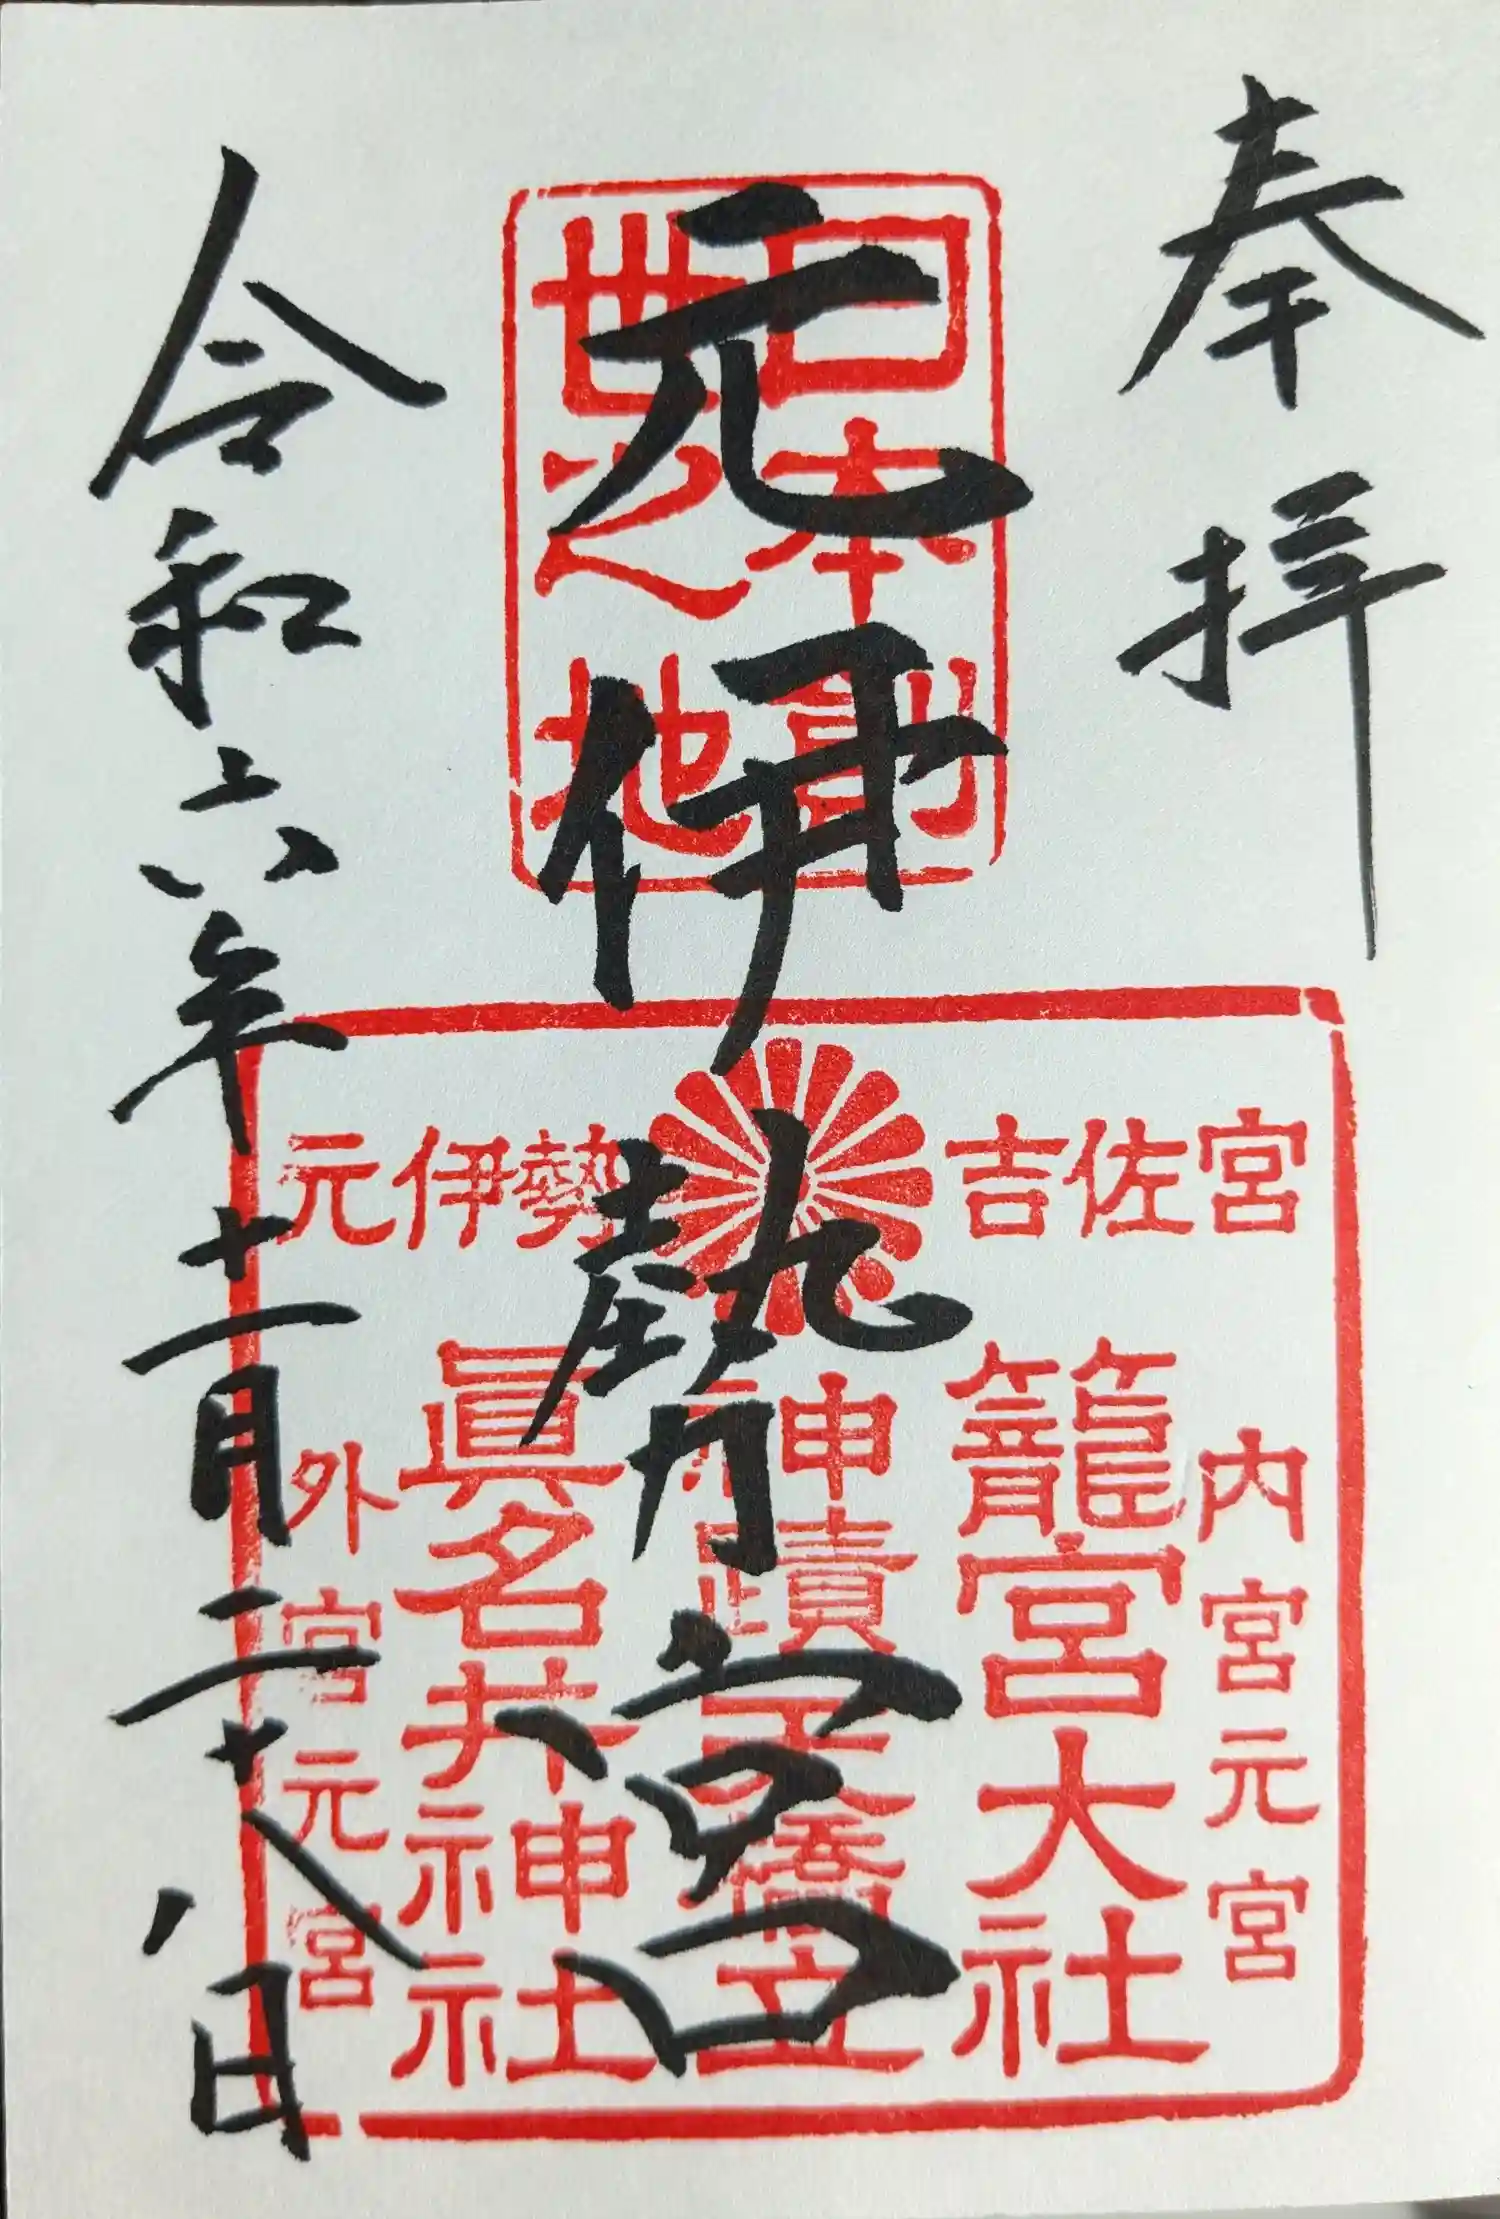 奉拝
元伊勢宮
令和六年十一月二十八日
日本創
世之地
元伊勢 吉佐宮
内宮元宮
籠宮大社
神蹟天橋立
眞名井神社
外宮元宮